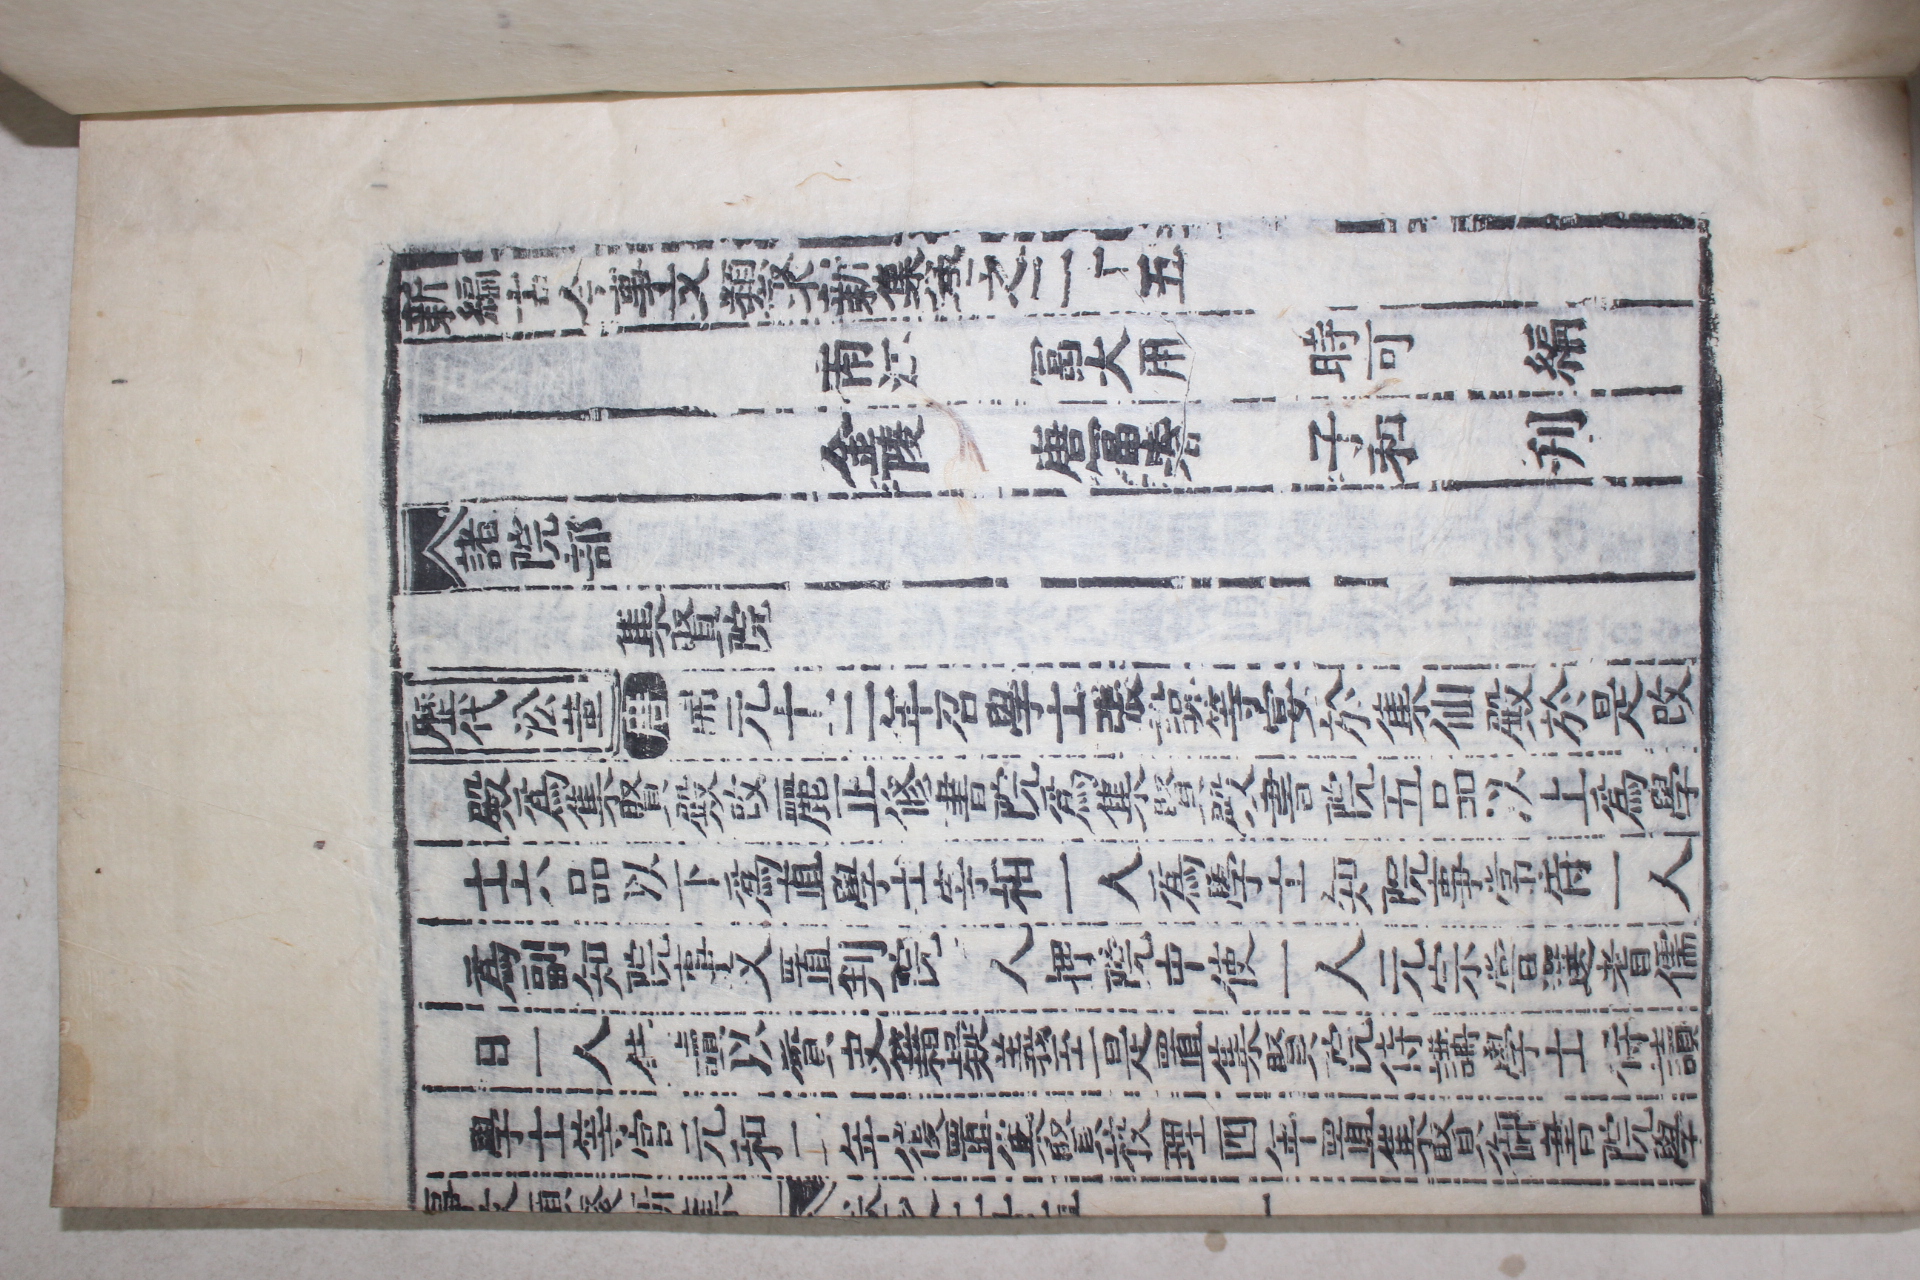 新編古今事文類聚新集卷之二十五
南江 冨大用 時可 編
金陵 唐冨春 子和 刋
諸院部
集賢院
歷代㳂革 唐 開元十三年召學士張說等宴於集仙殿於是改
殿爲集賢殿改麗正修書院爲集賢殿書院五品以上爲學
士六品以下爲直學士宰相一人爲學士知院事常侍一人
爲副知院事又置判院一人押院中使一人元宗嘗選耆儒
日一人侍讀以質史籍疑義至是置集賢院侍講學士侍讀
學士等官元和二年復置集賢校理四年置集賢御書院學
事文類聚新集 卷之二十五 一